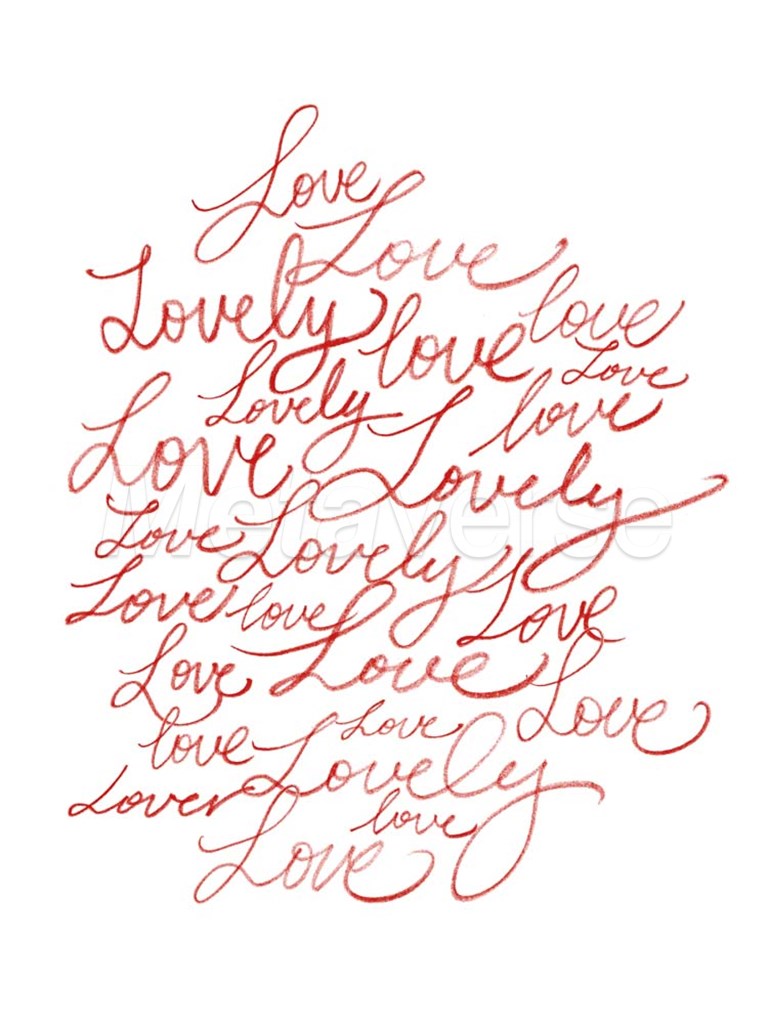 Love
Love
Lovely love love
Love
Lovely love
Love Lovely
Metaverse
Love Lovely
Love love Love
Love Love Love
love Love
Lovely
Lover love
Love